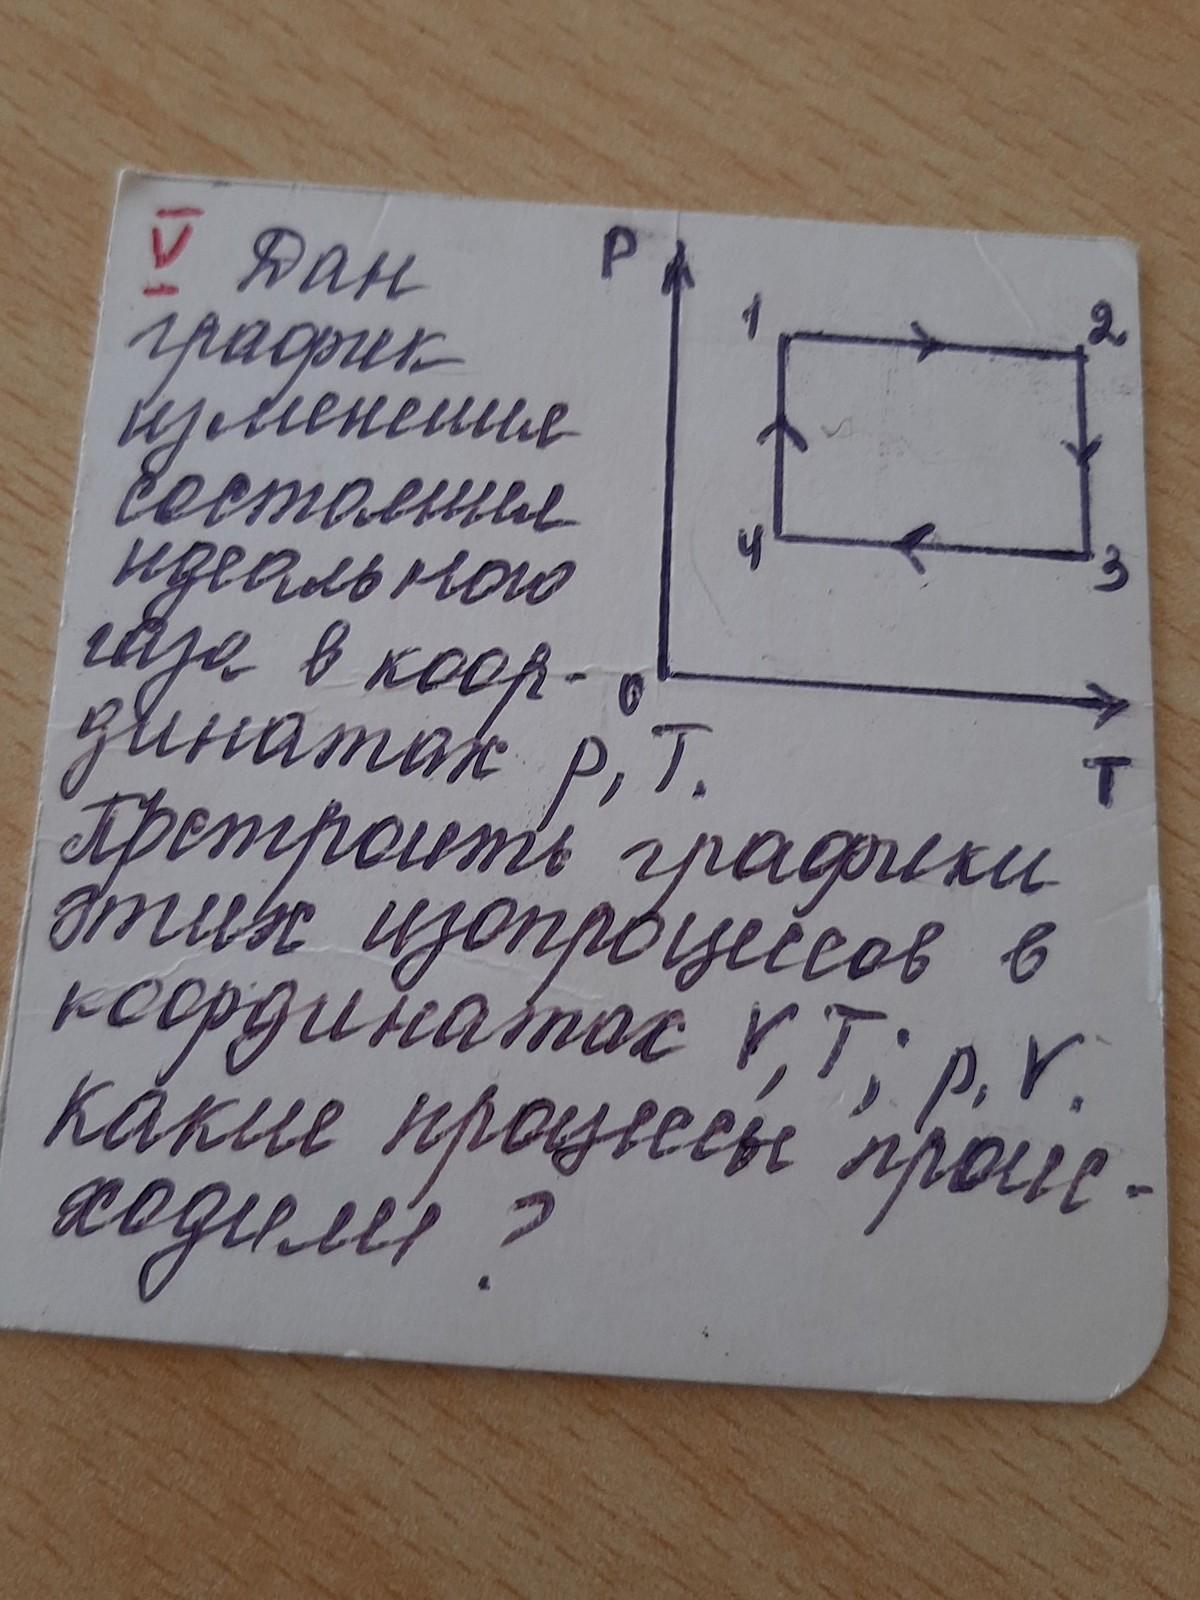 V Дан
график
изменения
состояния
идеального
газа в коор-
динатах p, T.
Построить графики
этих изопроцессов в
координатах V, T; p, V.
Какие процессы проис-
ходили?
P
1
2
4
3
0
T